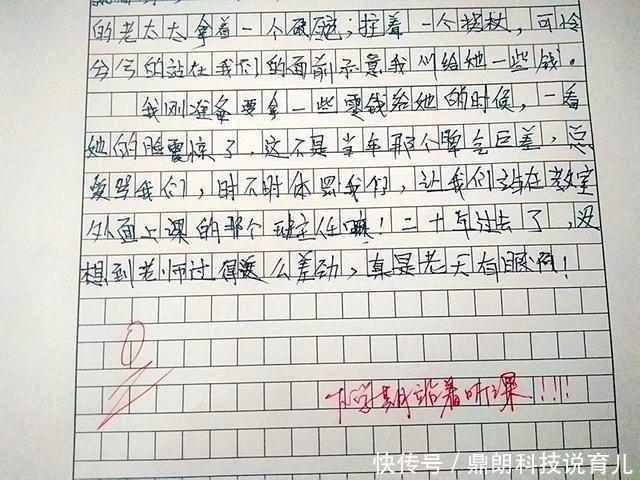 的老太太拿着一个破碗,拄着一个拐杖,可怜
兮兮的站在我们的面前示意我们给她一些钱。
我刚准备要拿一些零钱给她的时候,一看
她的脸震惊了,这不是当年那个脾气巨差,总
爱骂我们,时不时体罚我们,让我们站在教室
外面上课的那个班主任嘛!二十年过去了,没
想到老师过得这么差劲,真是老天有眼啊!
下学期站着听课!!!!
快传号/鼎朗科技说育儿